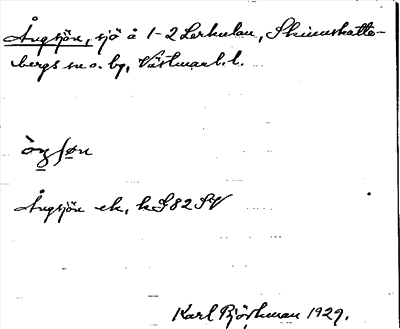 Ångsjön, sjö å 1-2 Lerkulan, Skinnskatte-
bergs sn o. bg, Västmanl. l.
òŋʃøn
Ångsjön ek. k S82 SV
Karl Björkman 1929.